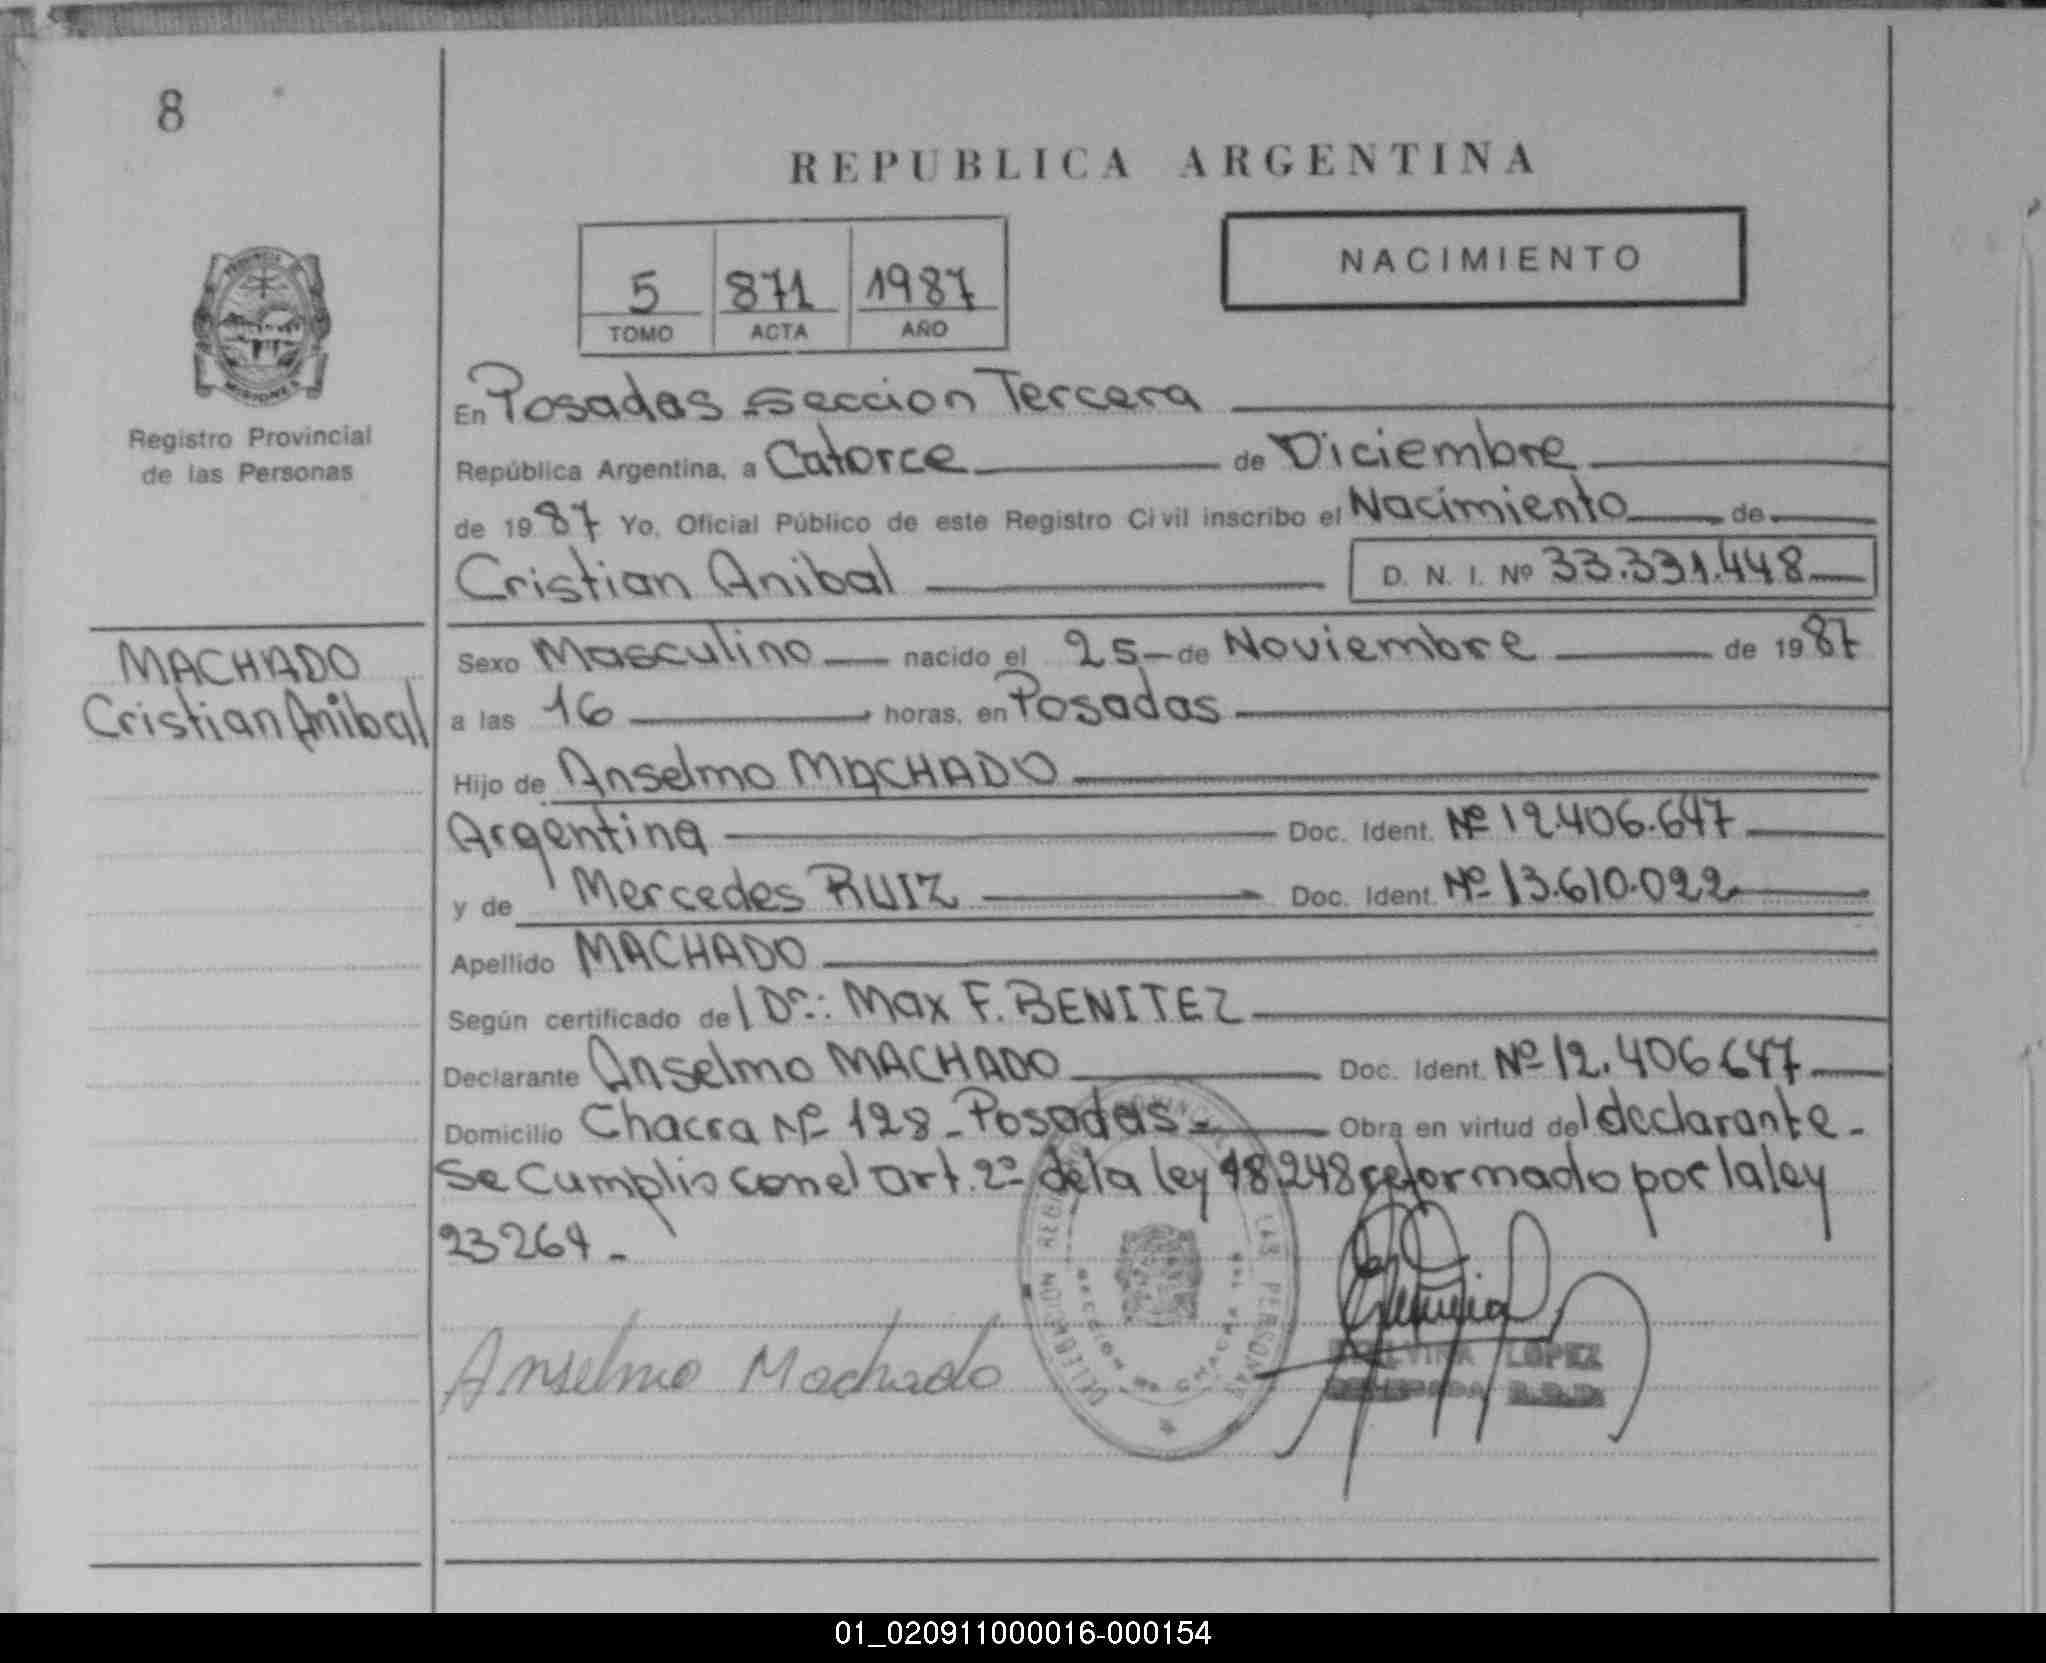 8
REPUBLICA ARGENTINA
NACIMIENTO
5 871 1987
TOMO ACTA AÑO
Registro Provincial
de las Personas
En Posadas seccion Tercera
República Argentina, a Catorce de Diciembre
de 1987 Yo, Oficial Público de este Registro Civil inscribo el Nacimiento de
Cristian Anibal D. N. I. Nº 33.331.448
MACHADO
Cristian Anibal
Sexo Masculino nacido el 25 de Noviembre de 1987
a las 16 horas, en Posadas
Hijo de Anselmo MACHADO
Argentina Doc. Ident. Nº 12.406.647
y de Mercedes RUIZ Doc. Ident. Nº 13.610.022
Apellido MACHADO
Según certificado del Dr.: Max F. BENITEZ
Declarante Anselmo MACHADO Doc. Ident. Nº 12.406647
Domicilio Chacra Nº 128 - Posadas - Obra en virtud del declarante -
Se Cumplio con el art. 2º de la ley 18248 reformado por la ley
23264 -
Anselmo Machado
LOPEZ
01_020911000016-000154